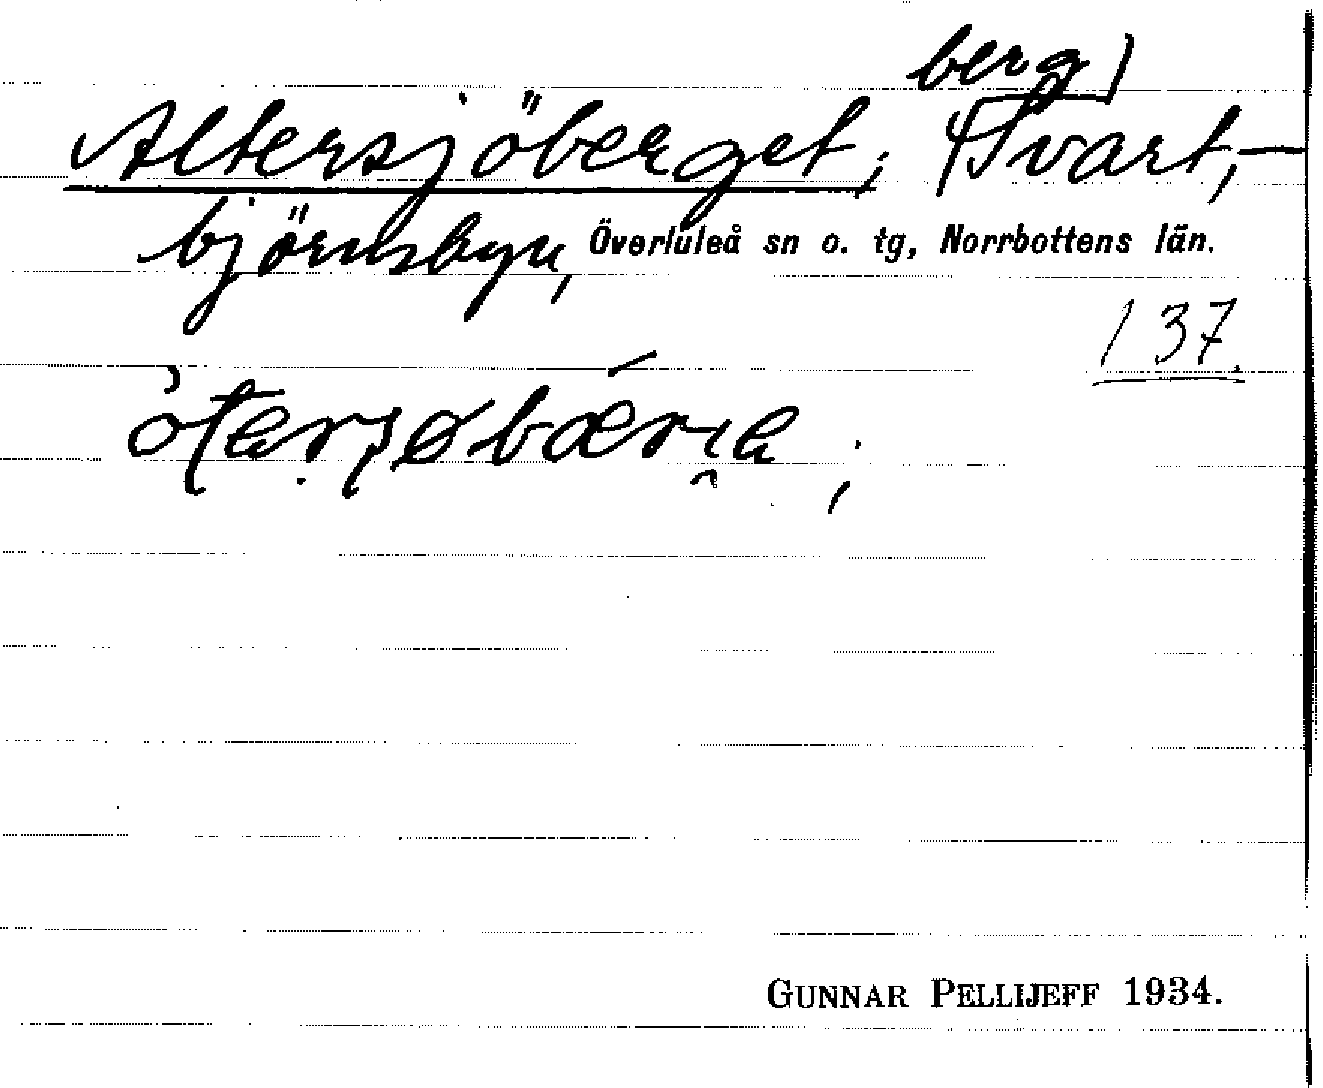 berg)
Altersjöberget; (Svart,-
björnsbyn, Överluleå sn o. tg, Norrbottens län.
137.
GUNNAR PELLIJEFF 1934.